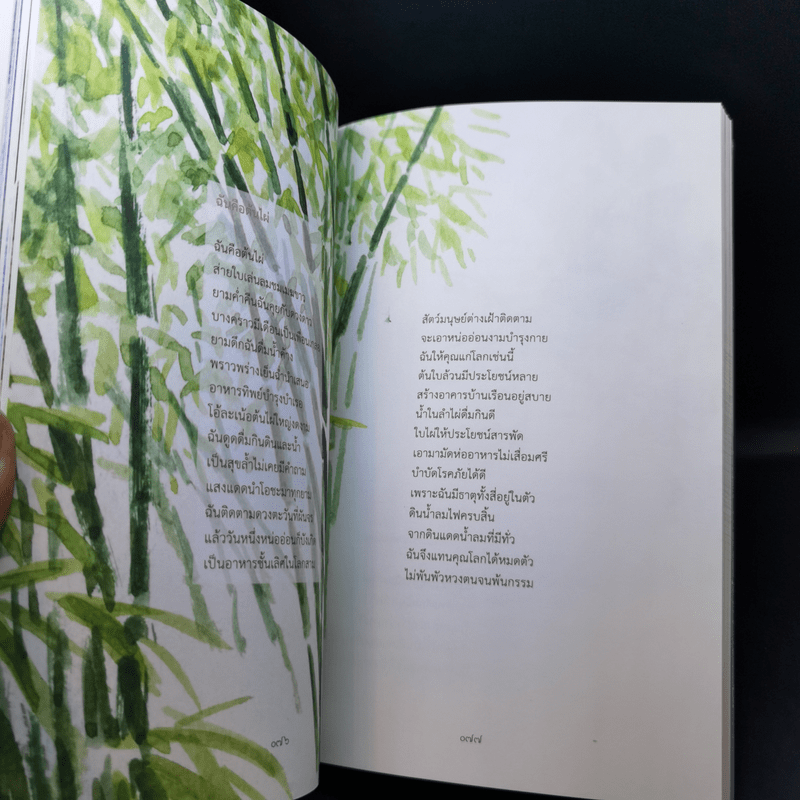 ฉันคือต้นไผ่
ฉันคือต้นไผ่
ส่ายใบเล่นลมชมเมฆขาว
ยามค่ำคืนฉันคุยกับดวงดาว
บางคราวมีเดือนเป็นเพื่อน
ยามดึกฉันดื่มน้ำค้าง
พราวพร่างเย็นฉ่ำ
อาหารทิพย์บำรุงบำเรอ
โอ้ละเน้อต้นไผ่ใหญ่งดงาม
ฉันดูดดื่มกินดินและน้ำ
เป็นสุขล้ำไม่เคยมีคำถาม
แสงแดดนำโอชะมาทุกยาม
ฉันติดตามดวงตะวันที่ผัน
แล้ววันหนึ่งหน่ออ่อนก็บังเกิด
เป็นอาหารชั้นเลิศในโลกสาม
๐๗๖
สัตว์มนุษย์ต่างเฝ้าติดตาม
จะเอาหน่ออ่อนงามบำรุงกาย
ฉันให้คุณแก่โลกเช่นนี้
ต้นใบล้วนมีประโยชน์หลาย
สร้างอาคารบ้านเรือนอยู่สบาย
น้ำในลำไผ่ดื่มกินดี
ใบไผ่ให้ประโยชน์สารพัด
เอามามัดห่ออาหารไม่เสื่อมศรี
บำบัดโรคภัยได้ดี
เพราะฉันมีธาตุทั้งสี่อยู่ในตัว
ดินน้ำลมไฟครบสิ้น
จากดินแดดน้ำลมที่มีทั่ว
ฉันจึงแทนคุณโลกได้หมดตัว
ไม่พันพัวหวงตนจนพ้นกรรม
๐๗๗